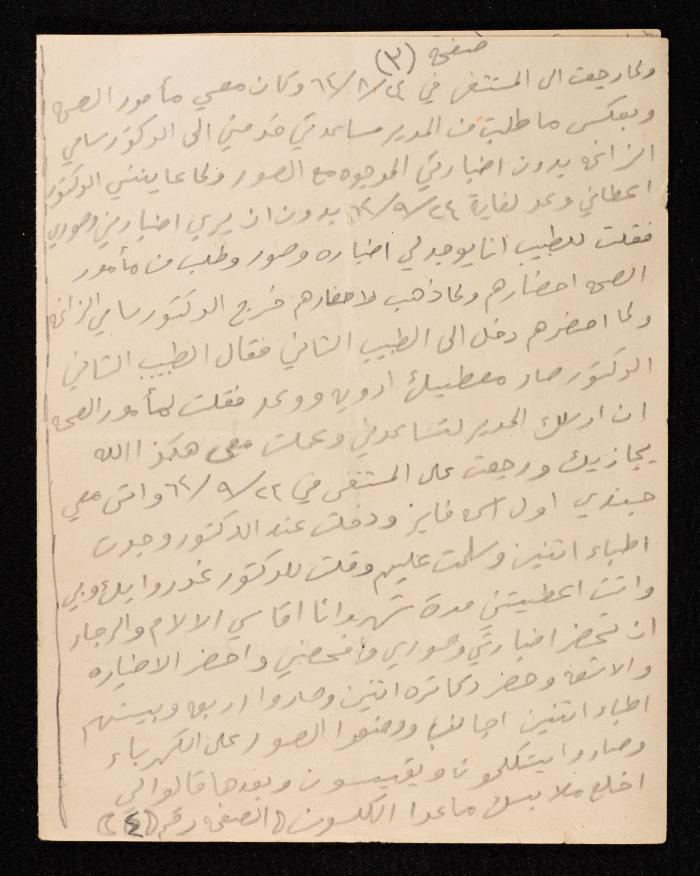 صفحه (٣)
ولما رجعت الى المستشفى في ٢٤/٨/٦٢ وكان معي مأمور الصحه
وبعكس ما طلبت من المدير مساعدتي قدمني الى الدكتور سامي
بدون اضبارتي الموجوده مع الصور ولما عاينني الدكتور
اعطاني وعد لغاية ٢٤/٩/٦٢ بدون ان يرى اضبارتي وصوري
فقلت للطبيب انا يوجد لي اضباره وصور وطلب من مأمور
الصحه احضارهم ولما ذهب لاحضارهم خرج الدكتور سامي
ولما احضرهم دخل الى الطبيب الثاني فقال الطبيب الثاني
الدكتور صار معطيك ادويه ووعد فقلت لمأمور الصحه
ان ارسلك المدير لتساعدني وعملت معي هكذا الله
يجازيك ورجعت على المستشفى في ٢٢/٩/٦٢ واتى معي
جندي اول اسمه فايز ودخلت عند الدكتور وجدت
اطباء اثنين وسلمت عليهم وقلت للدكتور
وانت اعطيتني مدة شهر وانا اقاسي الالام والرجاء
ان تحضر اضبارتي وصوري وافحصني واحضر الاضباره
والاشعه وحضر دكاتره اثنين وصاروا اربعه وبينهم
اطباء اثنين اجانب ووضعوا الصور على الكهرباء
وصاروا يتكلمون ويقيسون وبعدها قالوا لي
اخلع ملابسك ماعدا الكلسون (الصفحه رقم (٤))